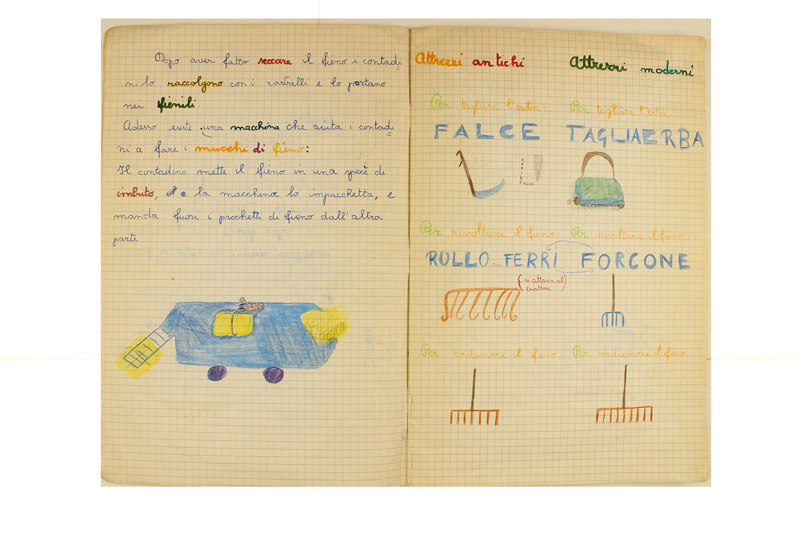 Dopo aver fatto seccare il fieno i contadi
ni lo raccolgono con i rastrelli e lo portano
nei fienili.
Adesso esiste una macchina che aiuta i contadi
ni a fare i mucchi di fieno:
Il contadino mette il fieno in una specè di
imbuto, e la macchina lo impacchetta, e
manda fuori i pacchetti di fieno dall'altra
parte
Attrezzi antichi
Per tagliare l'erba:
FALCE
Per rivoltare il fieno
RULLO con FERRI
(si attacca al trattore)
Per radunare il fieno
Attrezzi moderni
Per tagliare l'erba
TAGLIAERBA
Per rivoltare il fieno
FORCONE
Per radunare il fieno